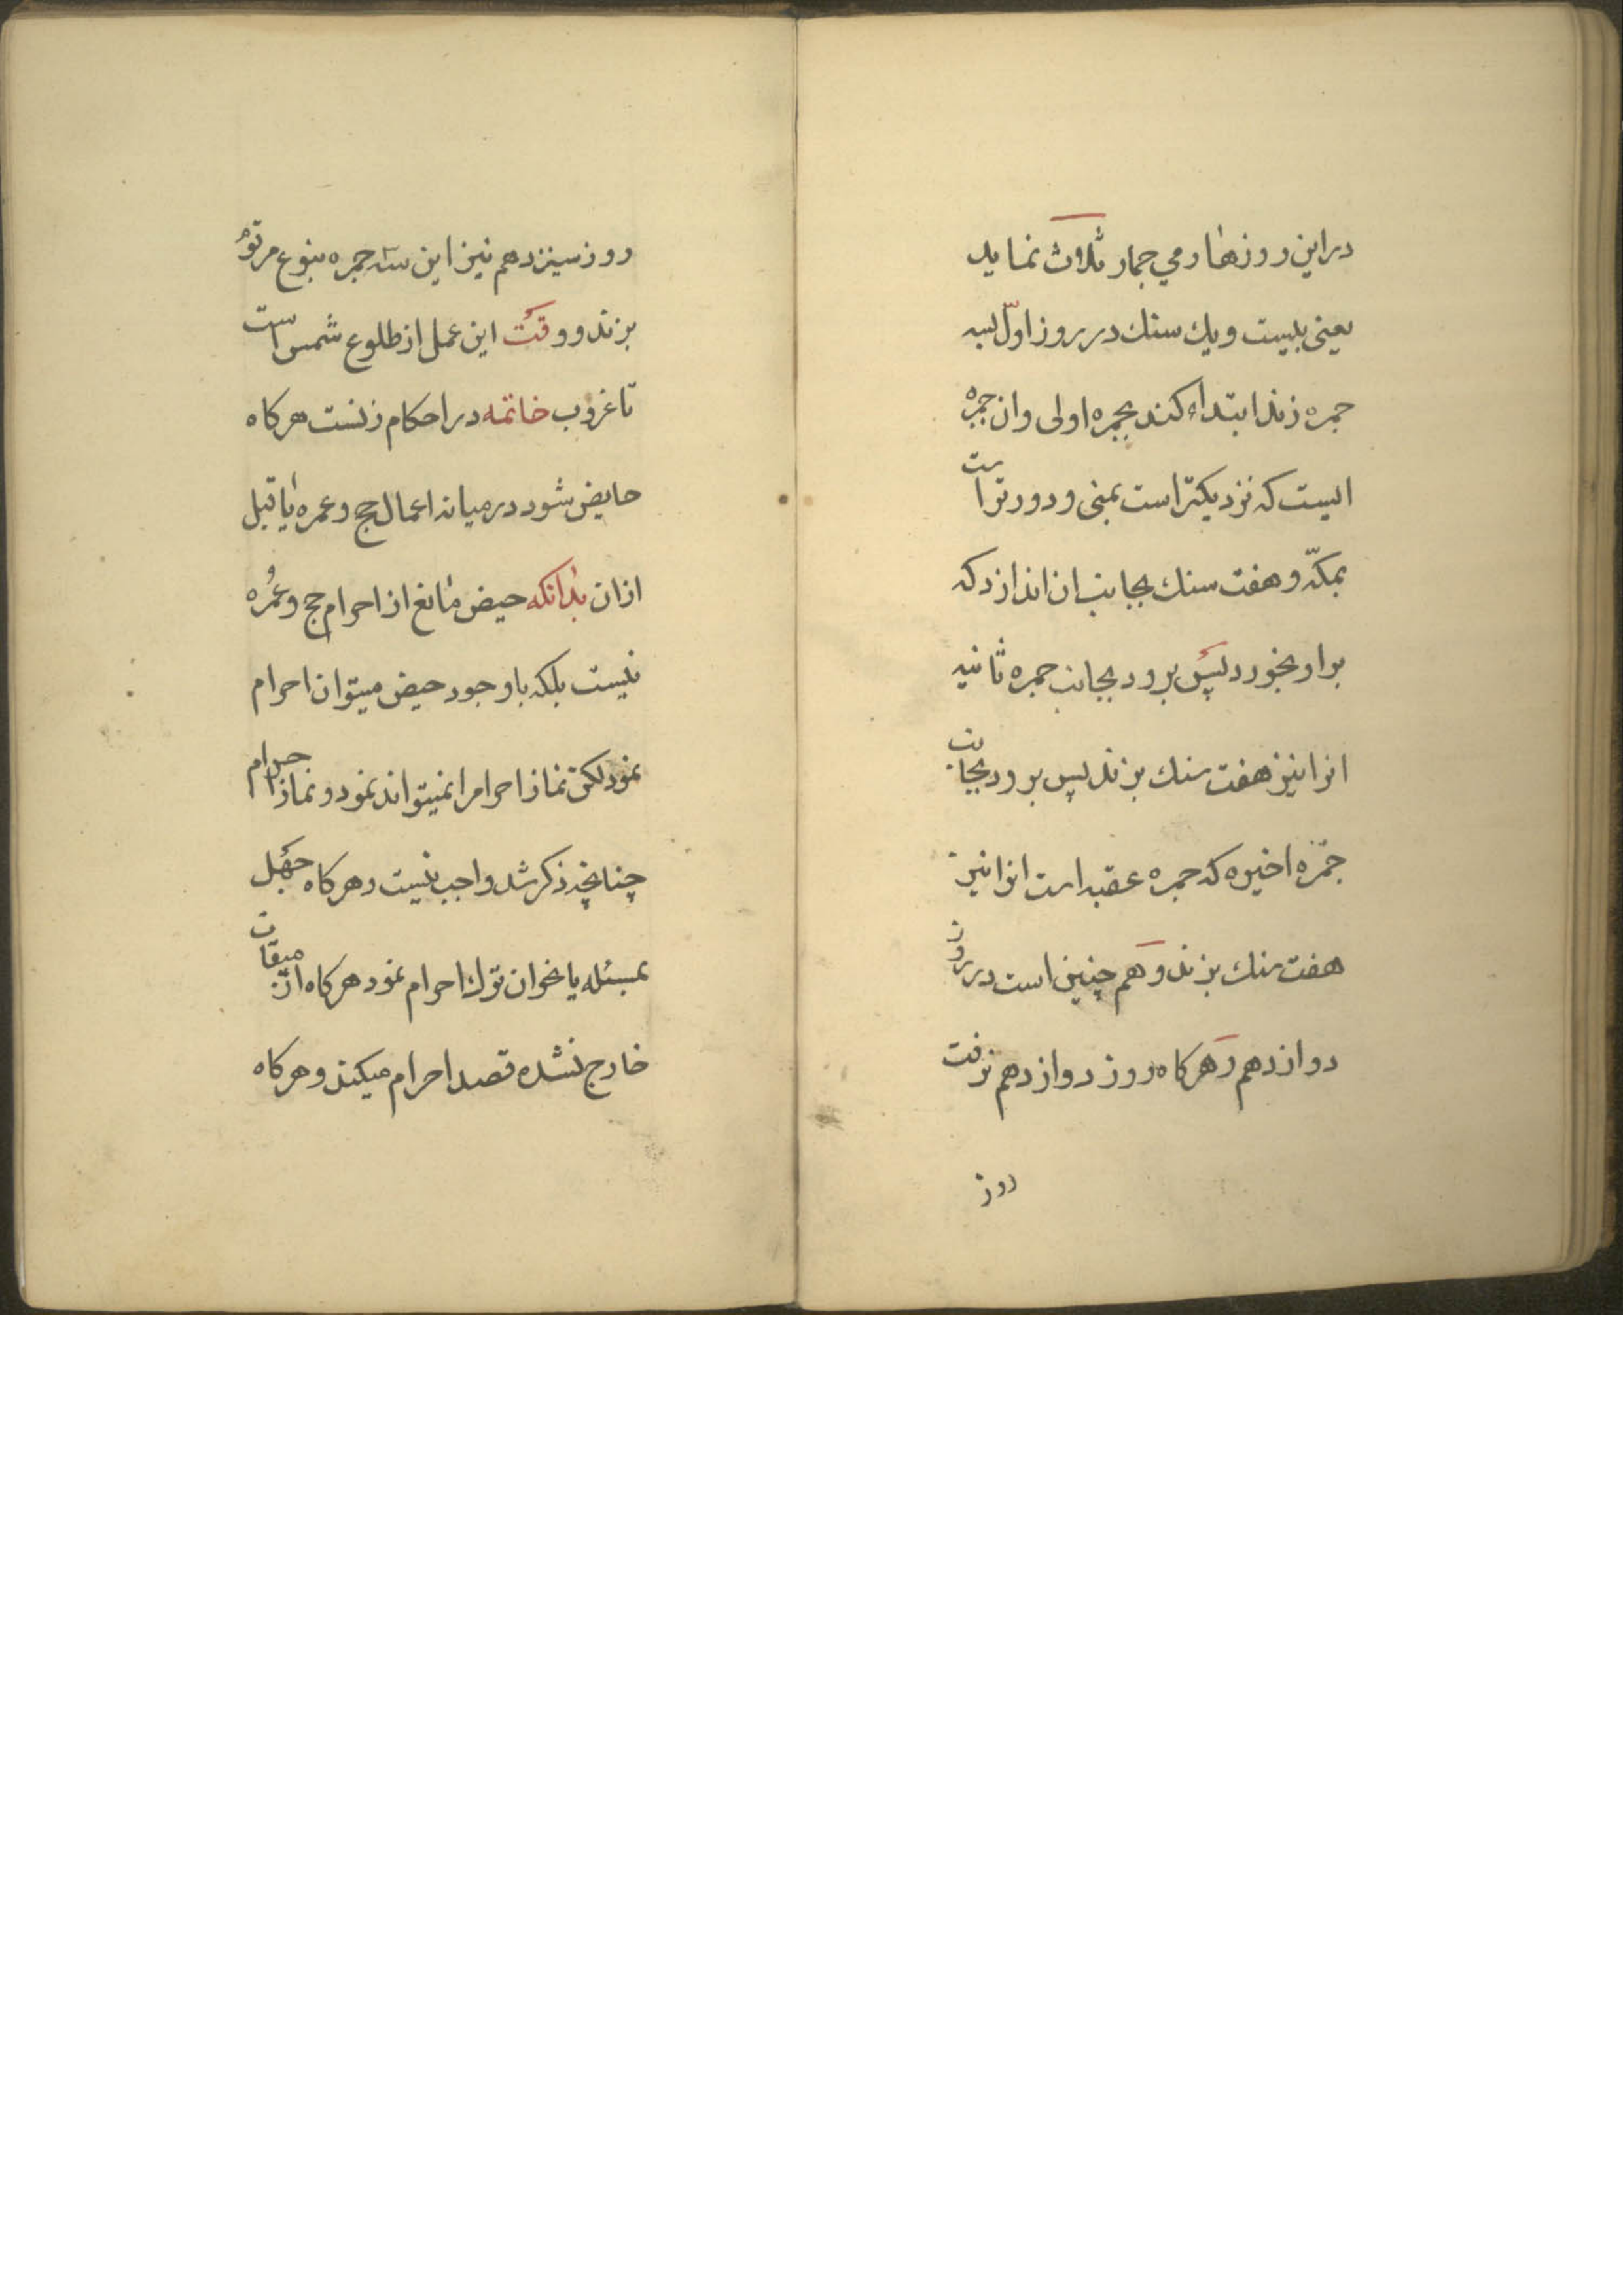 در این روزها رمي جمار ثلاث نماید
یعنی بیست ویك سنك در روز اوّل بسه
جمره زند ابتداء کند بجمره اولی وان جمره
ایست که نزدیکتر است بمنی و دورتر است
بمکّه و هفت سنك بجانب ان اندازد که
براو بخورد پس برود بجانب جمره ثانیه
انرا نیز هفت سنك بزند پس برود بجانب
جمره اخیره که جمره عقبه است انرا نیز
هفت سنك بزند و هم چنین است در روز
دوازدهم و هرکاه روز دوازدهم نرفت
روز
روز سیزدهم نیز این سه جمره بنوع مرقوم
بزند و وقت این عمل از طلوع شمس است
تا غروب خاتمه در احکام زنست هرکاه
حایض شود در میانه اعمال حج و عمره یا قبل
ازان بدانکه حیض مانع از احرام حج و عمره
نیست بلکه باوجود حیض میتوان احرام
نمود لکن نماز احرام را نمیتواند نمود و نماز احرام
چنانچه ذکر شد واجب نیست و هرکاه جهل
بمسئله یا بخوان ترك احرام نمود هرکاه از میقات
خارج نشده قصد احرام میکند و هرکاه